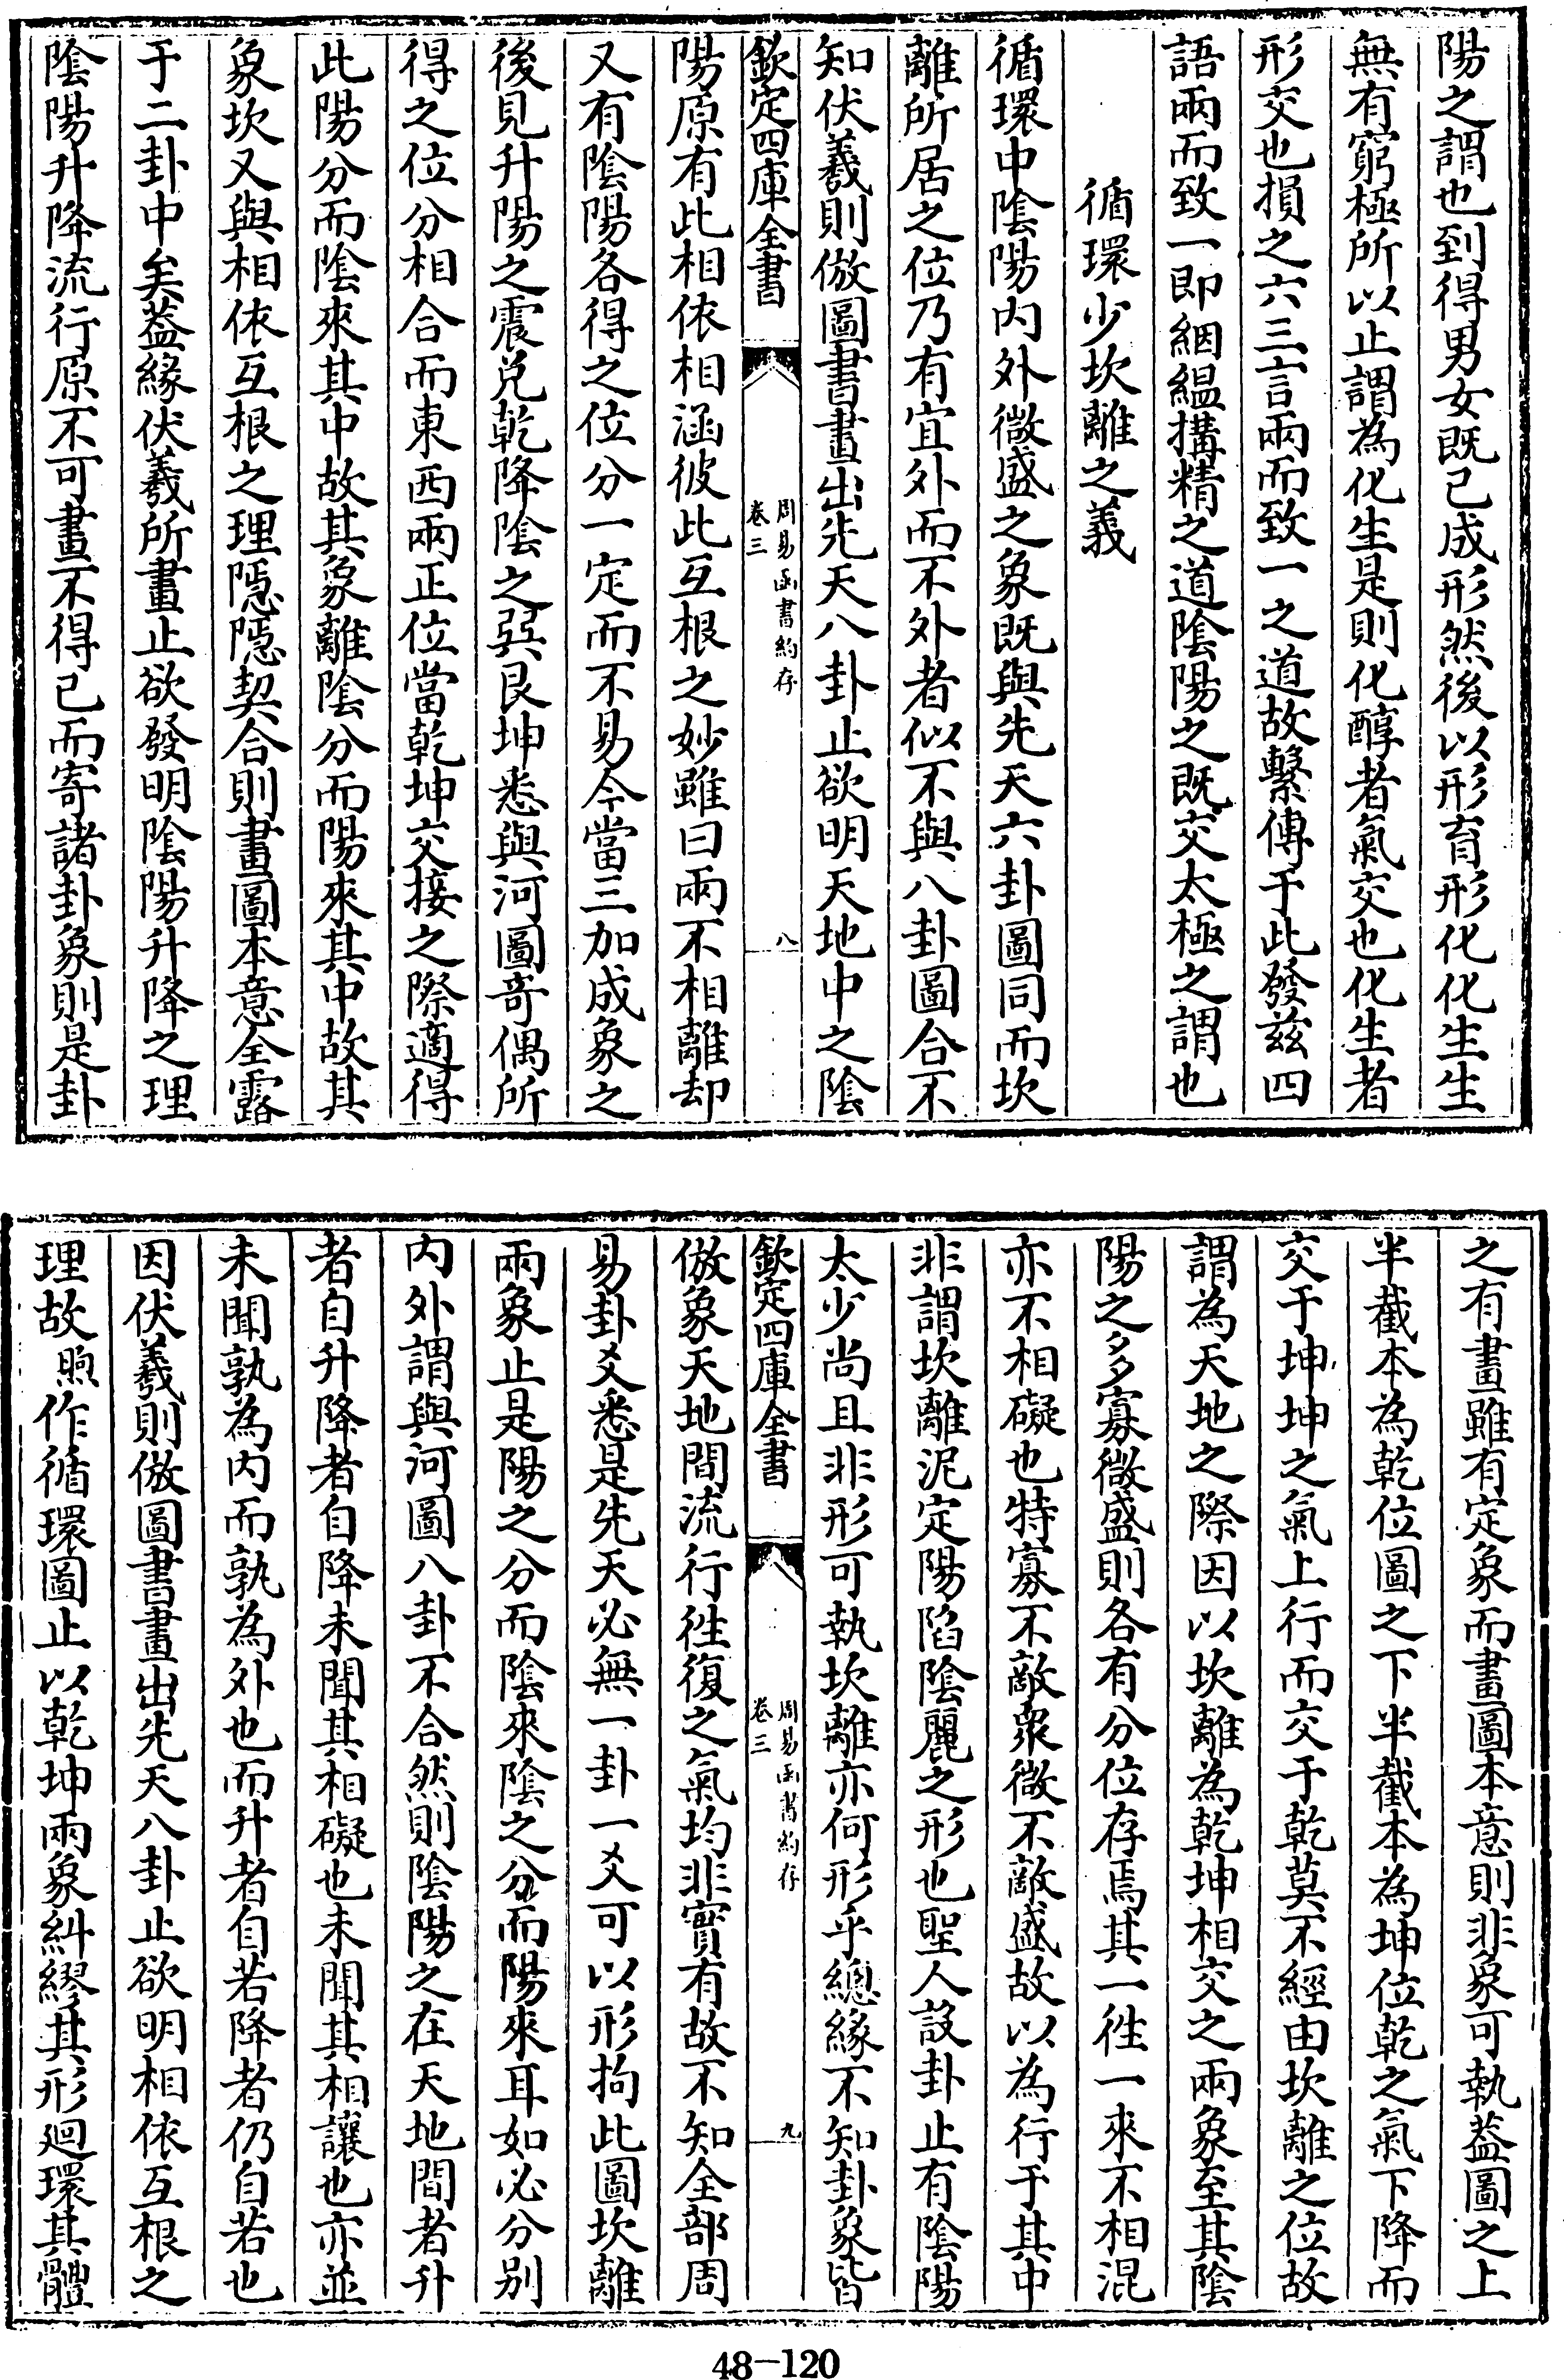 陽之謂也到得男女既已成形然後以形育形化化生生
無有窮極所以止謂為化生是則化醇者氣交也化生者
形交也損之六三言兩而致一之道故繫傳于此發兹四
語兩而致一即絪縕搆精之道陰陽之既交太極之謂也
循環少坎離之義
循環中陰陽内外微盛之象既與先天六卦圖同而坎
離所居之位乃有宜外而不外者似不與八卦圖合不
知伏羲則倣圖書畫出先天八卦止欲明天地中之陰
欽定四庫全書
周易函書約存
卷三
八
陽原有此相依相涵彼此互根之妙雖曰兩不相離却
又有陰陽各得之位分一定而不易今當三加成象之
後見升陽之震兌乾降陰之巽艮坤悉與河圖奇偶所
得之位分相合而東西兩正位當乾坤交接之際適得
此陽分而陰來其中故其象離陰分而陽來其中故其
象坎又與相依互根之理隱隱契合則畫圖本意全露
于二卦中矣葢緣伏羲所畫止欲發明陰陽升降之理
陰陽升降流行原不可畫不得已而寄諸卦象則是卦
之有畫雖有定象而畫圖本意則非象可執葢圖之上
半截本為乾位圖之下半截本為坤位乾之氣下降而
交于坤坤之氣上行而交于乾莫不經由坎離之位故
謂為天地之際因以坎離為乾坤相交之兩象至其陰
陽之多寡微盛則各有分位存焉其一徃一來不相混
亦不相礙也特寡不敵衆微不敵盛故以為行于其中
非謂坎離泥定陽陷陰麗之形也聖人設卦止有陰陽
太少尚且非形可執坎離亦何形乎總緣不知卦象皆
欽定四庫全書
周易函書約存
卷三
九
倣象天地間流行徃復之氣均非實有故不知全部周
易卦爻悉是先天必無一卦一爻可以形拘此圖坎離
兩象止是陽之分而陰來陰之分而陽來耳如必分别
内外謂與河圖八卦不合然則陰陽之在天地間者升
者自升降者自降未聞其相礙也未聞其相讓也亦並
未聞孰為内而孰為外也而升者自若降者仍自若也
因伏羲則倣圖書畫出先天八卦止欲明相依互根之
理故煦作循環圖止以乾坤兩象糾繆其形廻環其體
48-120